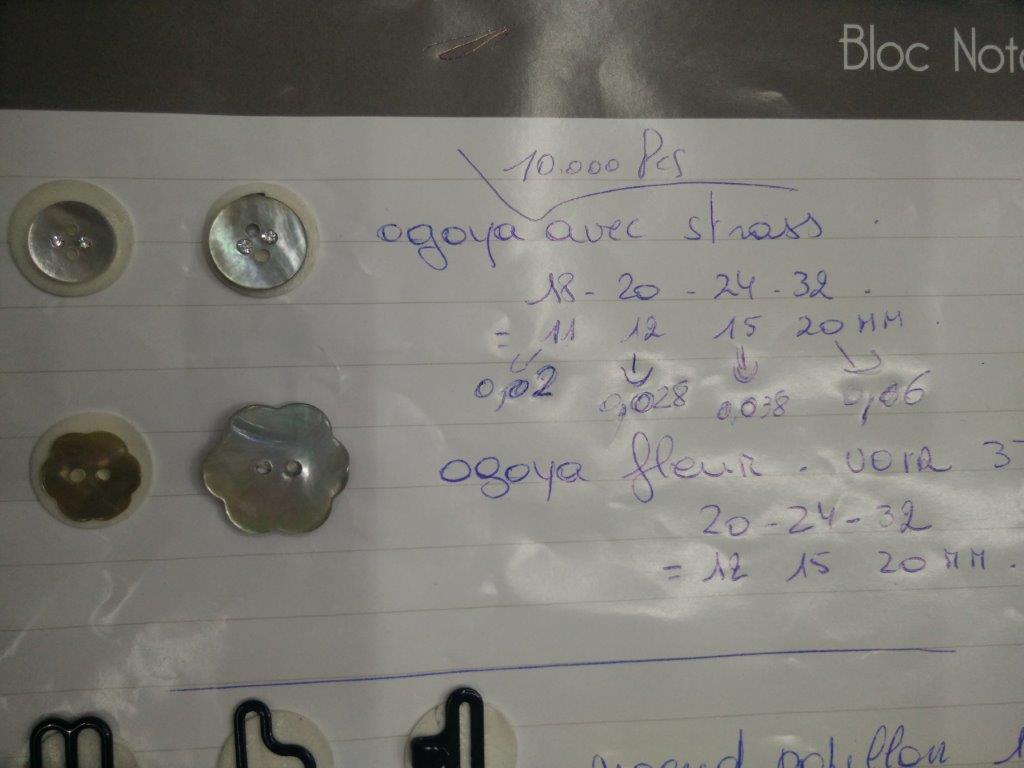 Bloc Note
10.000 Pcs
ogoya avec strass.
18 - 20 - 24 - 32.
= 11 12 15 20 MM.
0,02 0,028 0,038 0,06
ogoya fleur. voir 3
20 - 24 - 32
= 12 15 20 MM.
noeud papillon 1